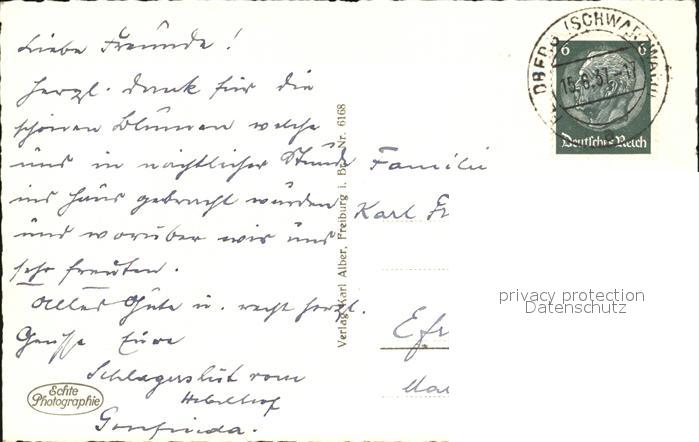 Liebe Freunde!
herzl. Dank für die
schönen Blumen welche
uns in nächtlicher Stunde
ins Haus gebracht wurden
und worüber wir uns
sehr freuten.
Alles Gute u. recht herzl.
Grüsse Eure
vom
Echte
Photographie
Verlag Karl Alber, Freiburg i. Br. Nr. 6168
6 6
Deutsches Reich
(SCHWARZWALD)
15.6.37.-17
Familie
Karl Fr
Efr
privacy protection
Datenschutz